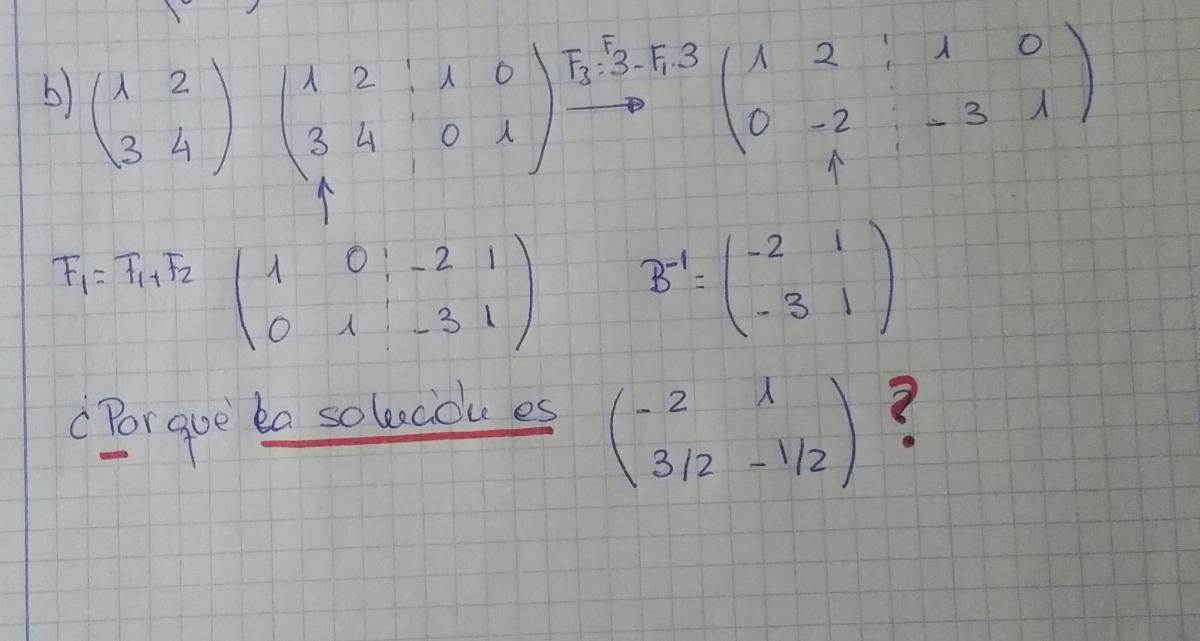 b) (1 2 3 4) (1 2 ⋮ 1 0 3 4 ⋮ 0 1) F₃=F3-F₁·3 → (1 2 ⋮ 1 0
0 -2 ⋮ -3 1)
↑ ↑
F₁=F₁+F₂ (1 0 ⋮ -2 1 B⁻¹= (-2 1
0 1 ⋮ -3 1) -3 1)
¿Por qué la solución es (-2 1 ?
3/2 -1/2)